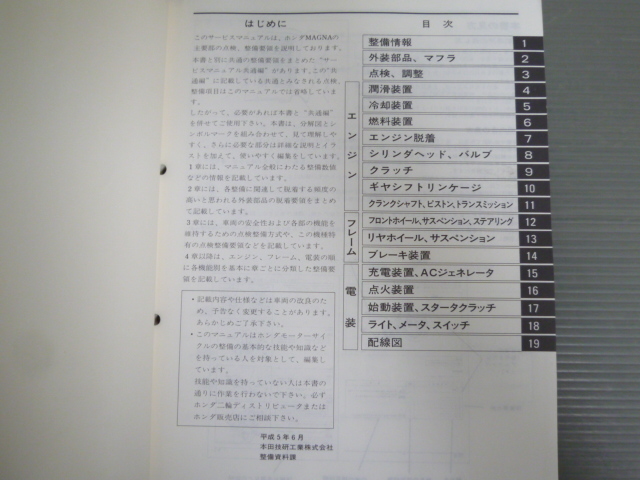 はじめに
このサービスマニュアルは、ホンダMAGNAの
主要部の点検、整備要領を説明しております。
本書と別に共通の整備要領をまとめた"サー
ビスマニュアル共通編"があります。この"共
通編"に記載している共通とみなされる点検、
整備項目はこのマニュアルでは省略していま
す。
したがって、必要があれば本書と"共通編"
を併せてご使用下さい。本書は、分解図とシ
ンボルマークを組み合わせて、見て理解しや
すく、さらに必要な部分は詳細な説明とイラ
ストを加えて、使いやすく編集をしています。
1章には、マニュアル全般にわたる整備数値
などの情報を記載しています。
2章には、各整備に関連して脱着する頻度の
高いと思われる外装部品の脱着要領をまとめ
て記載しています。
3章には、車両の安全性および各部の機能を
維持するための点検整備方式や、この機種特
有の点検整備要領などを記載しています。
4章以降は、エンジン、フレーム、電装の順
に各機能別を基本に章ごとに分類した整備要
領を記載しています。
・記載内容や仕様などは車両の改良のた
め、予告なく変更することがあります。
あらかじめご了承下さい。
・このマニュアルはホンダモーターサイク
ルの整備の基本的な技能や知識など
を持っている人を対象として、編集し
ています。
技能や知識を持っていない人は本書の
通りに作業を行わないで下さい。必ず
ホンダ二輪ディストリビュータまたは
ホンダ販売店にご相談下さい。
平成5年6月
本田技研工業株式会社
整備資料課
目 次
整備情報 1
外装部品、マフラ 2
点検、調整 3
エンジン
潤滑装置 4
冷却装置 5
燃料装置 6
エンジン脱着 7
シリンダヘッド、バルブ 8
クラッチ 9
ギヤシフトリンケージ 10
クランクシャフト、ピストン、トランスミッション 11
フレーム
フロントホイール、サスペンション、ステアリング 12
リヤホイール、サスペンション 13
ブレーキ装置 14
電装
充電装置、ACジェネレータ 15
点火装置 16
始動装置、スタータクラッチ 17
ライト、メータ、スイッチ 18
配線図 19